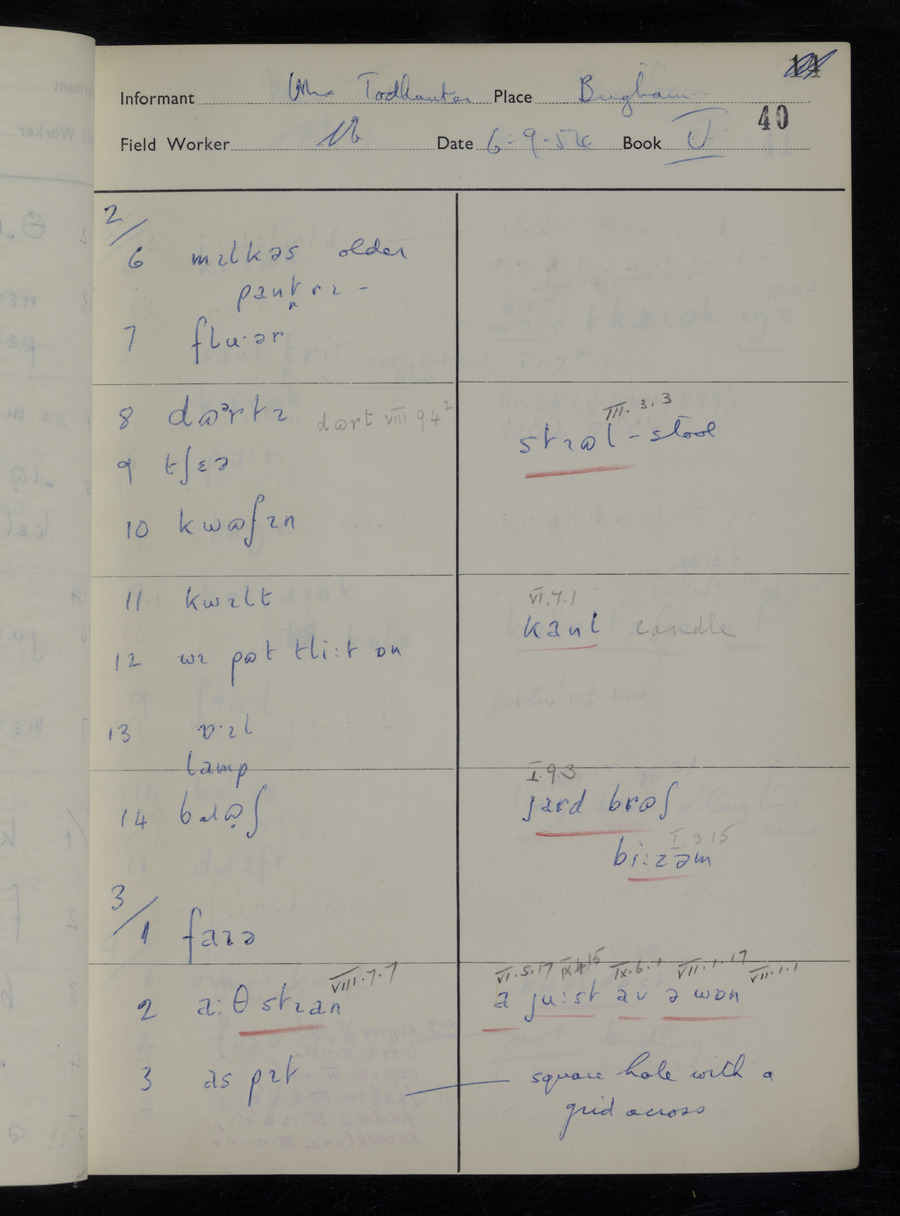 14
Informant Mrs Todhunter Place Brigham
40
Field Worker Date 6-9-54 Book V
2/
6 mɪlkəs older
pantrɪ -
7 flu·ər
8 dɷərtɪ dɷrt VIII.9.4²
III.3.3
strɷl - stool
9 tʃɛə
10 kwɷʃɪn
11 kwɪlt
VI.7.1
kanl candle
12 wɪ pɷt tli:t ɒn
13 ɒ·ɪl
lamp
14 bɹɷ̣ʃ
I.9.3
jard brɷʃ
I.3.15
bi:zəm
3/
1 faɪə
2 a:θ stɪan VIII.7.7
VI.5.17 IX.4.15 IX.6.1 VII.1.17 VII.1.1
a ju:st av ə wɒn
3 as pɪt square hole with a
grid across